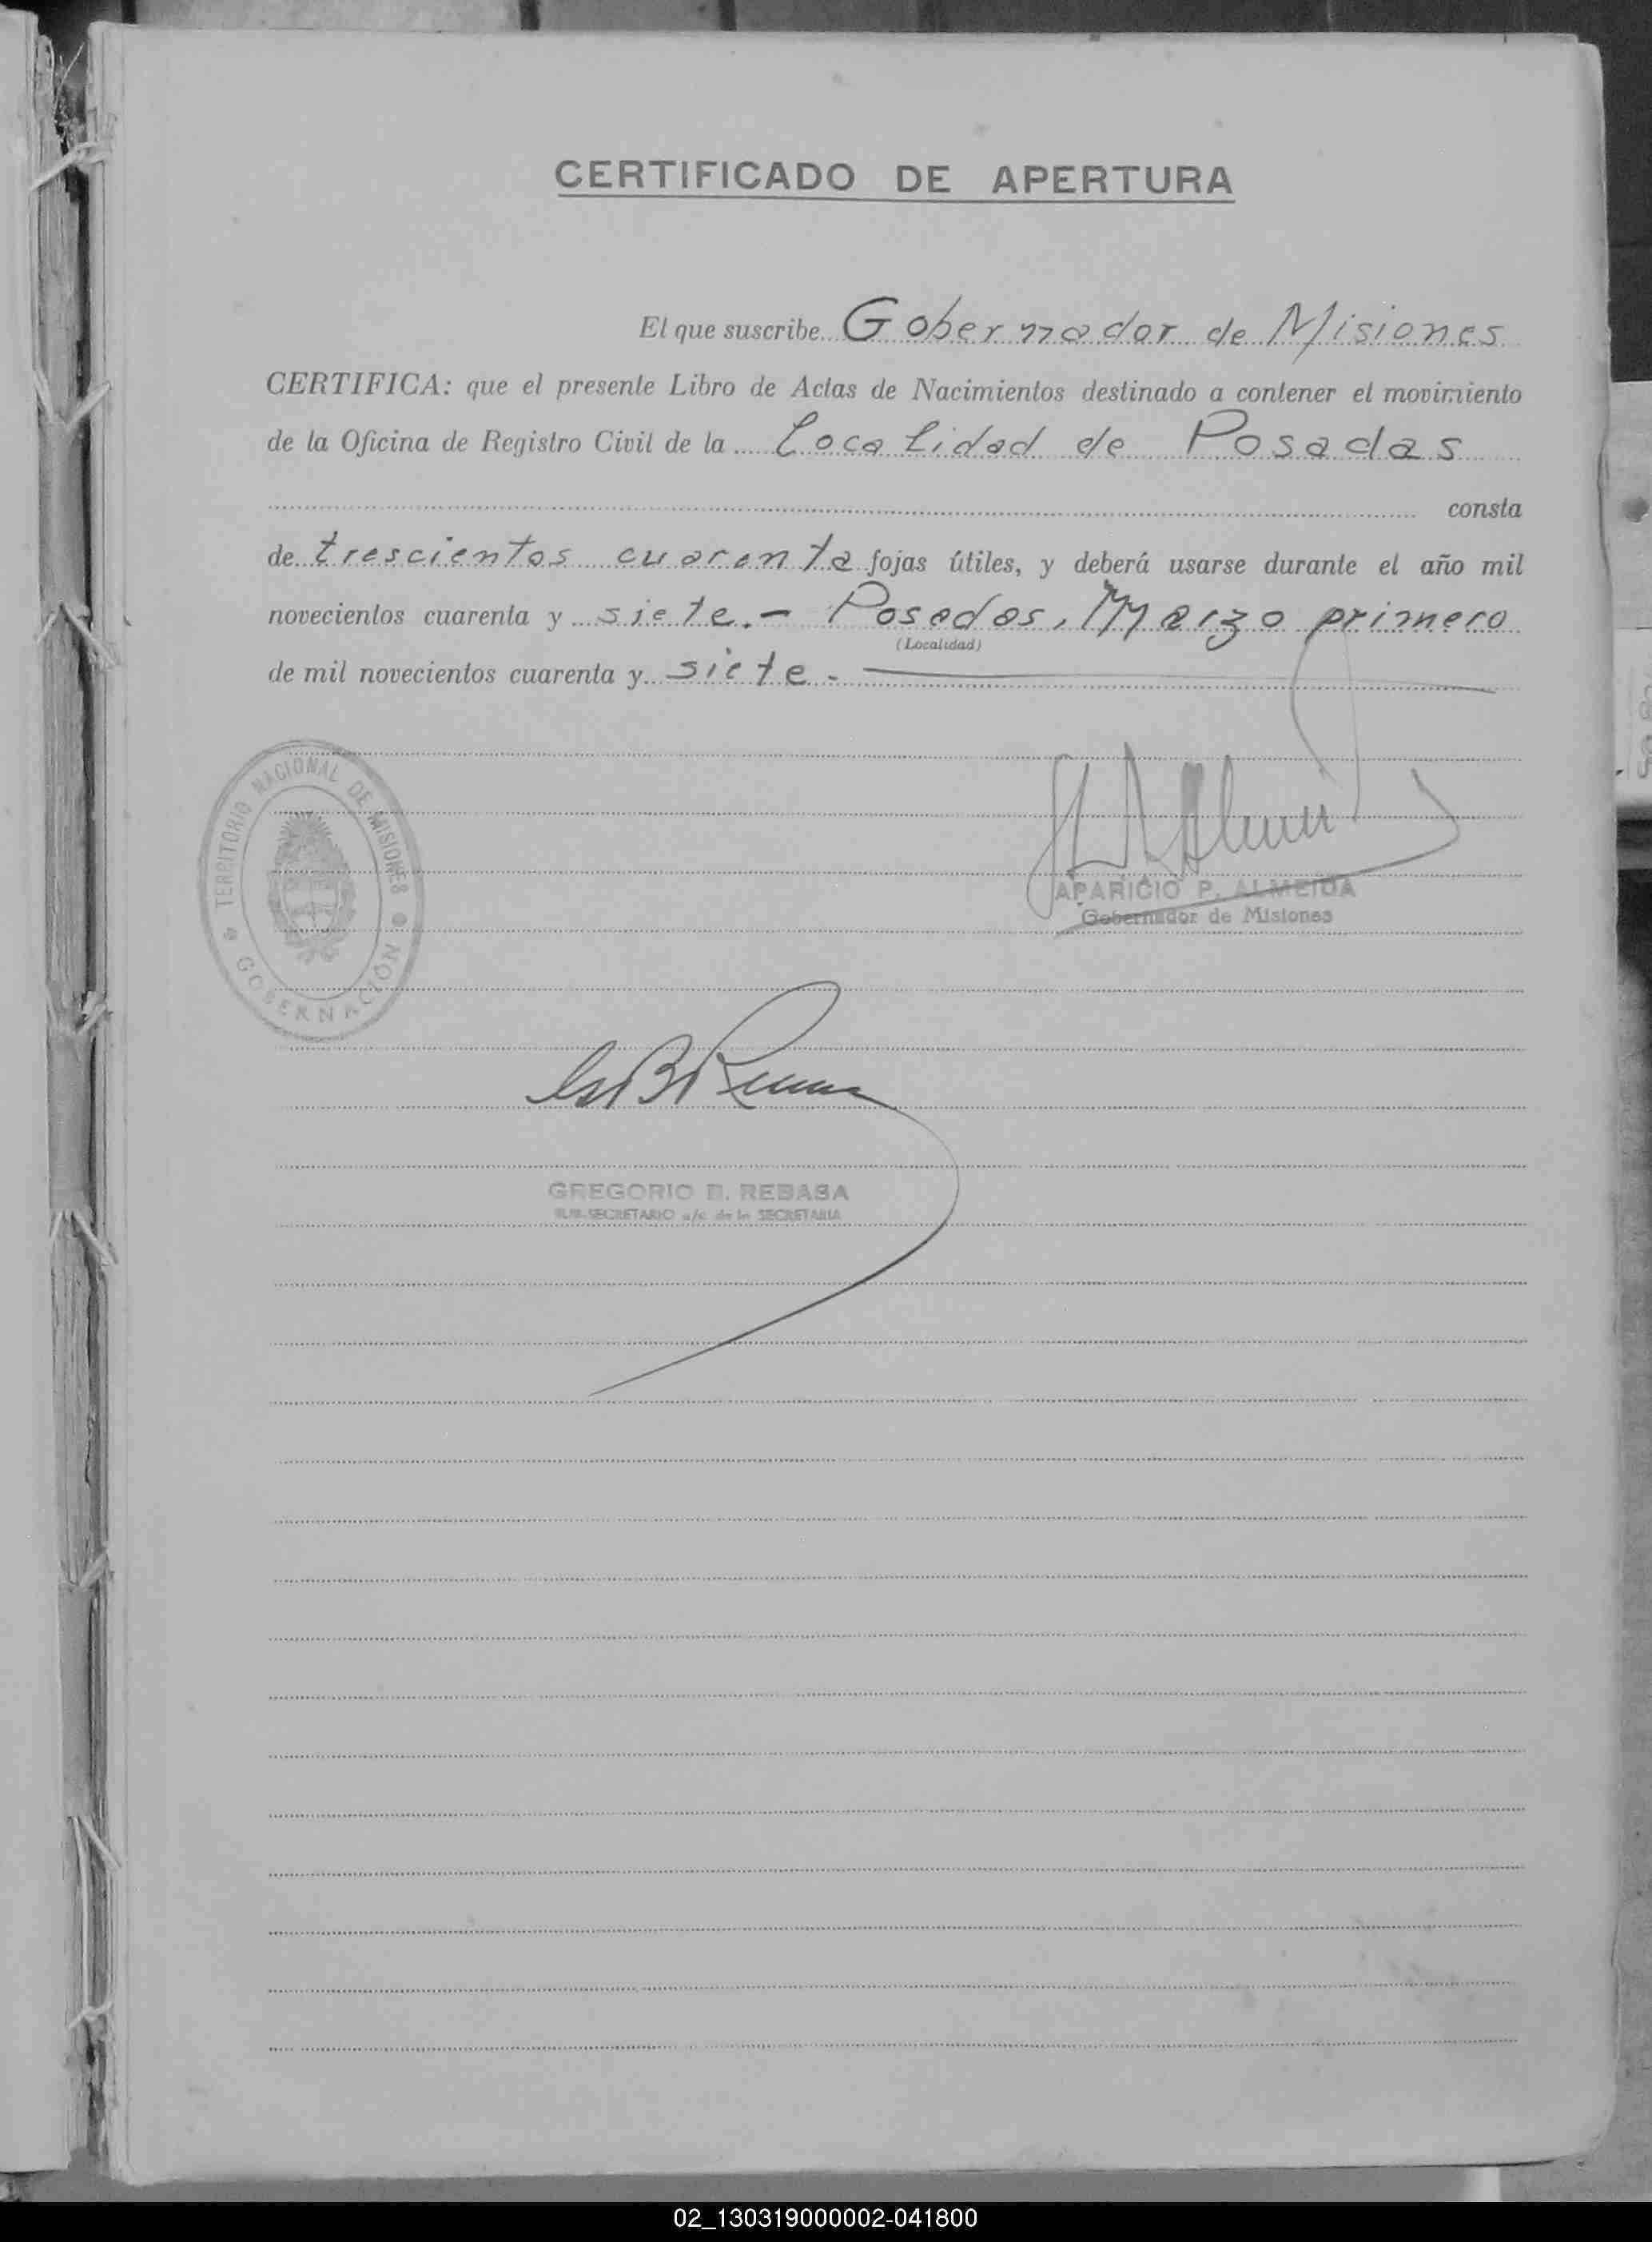 CERTIFICADO DE APERTURA
El que suscribe Gobernador de Misiones
CERTIFICA: que el presente Libro de Actas de Nacimientos destinado a contener el movimiento
de la Oficina de Registro Civil de la Localidad de Posadas
consta
de trescientos cuarenta fojas útiles, y deberá usarse durante el año mil
novecientos cuarenta y siete.- Posadas, Marzo primero
(Localidad)
de mil novecientos cuarenta y siete.-
TERRITORIO NACIONAL DE MISIONES
GOBERNACIÓN
APARICIO P. ALMEIDA
Gobernador de Misiones
GREGORIO B. REBASA
SUB-SECRETARIO a/c de la SECRETARIA
02_130319000002-041800